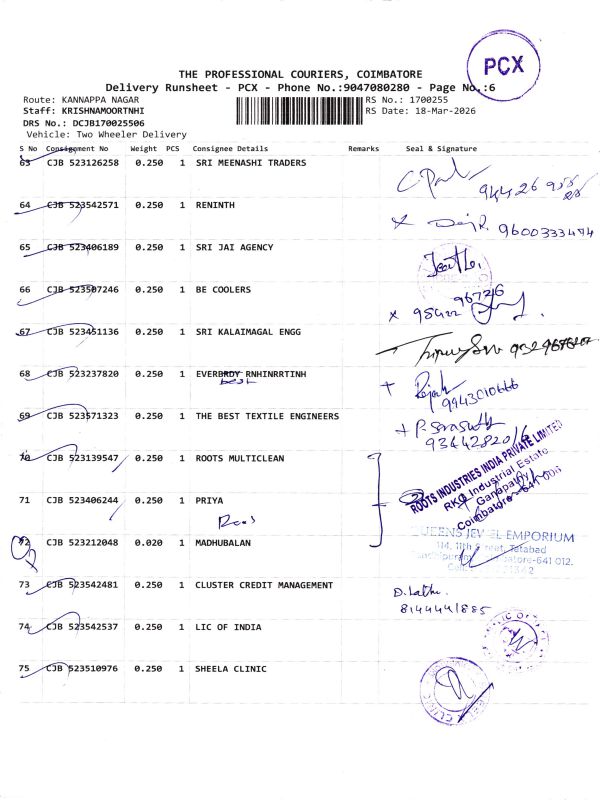 PCX
THE PROFESSIONAL COURIERS, COIMBATORE
Delivery Runsheet - PCX - Phone No.:9047080280 - Page No.:6
Route: KANNAPPA NAGAR
RS No.: 1700255
Staff: KRISHNAMOORTNHI
RS Date: 18-Mar-2026
DRS No.: DCJB170025506
Vehicle: Two Wheeler Delivery
S No Consignment No Weight PCS Consignee Details Remarks Seal & Signature
63 CJB 523126258 0.250 1 SRI MEENASHI TRADERS
64 CJB 523542571 0.250 1 RENINTH
9600333474
65 CJB 523406189 0.250 1 SRI JAI AGENCY
66 CJB 523507246 0.250 1 BE COOLERS
67 CJB 523451136 0.250 1 SRI KALAIMAGAL ENGG
68 CJB 523237820 0.250 1 EVERBRDY RNHINRRTINH
best
Rajah
9943010666
69 CJB 523571323 0.250 1 THE BEST TEXTILE ENGINEERS
P. Saraswathy
9344282016
70 CJB 523139547 0.250 1 ROOTS MULTICLEAN
ROOTS INDUSTRIES INDIA PRIVATE LIMITED
RKG Industrial Estate
Ganapathy
Coimbatore-641 006
71 CJB 523406244 0.250 1 PRIYA
Roots
72 CJB 523212048 0.020 1 MADHUBALAN
QUEENS JEWEL EMPORIUM
114, 11th Street, Tatabad
73 CJB 523542481 0.250 1 CLUSTER CREDIT MANAGEMENT
D. Latha
8144441885
74 CJB 523542537 0.250 1 LIC OF INDIA
75 CJB 523510976 0.250 1 SHEELA CLINIC